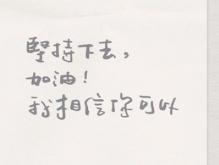 堅持下去，
加油！
我相信你可以